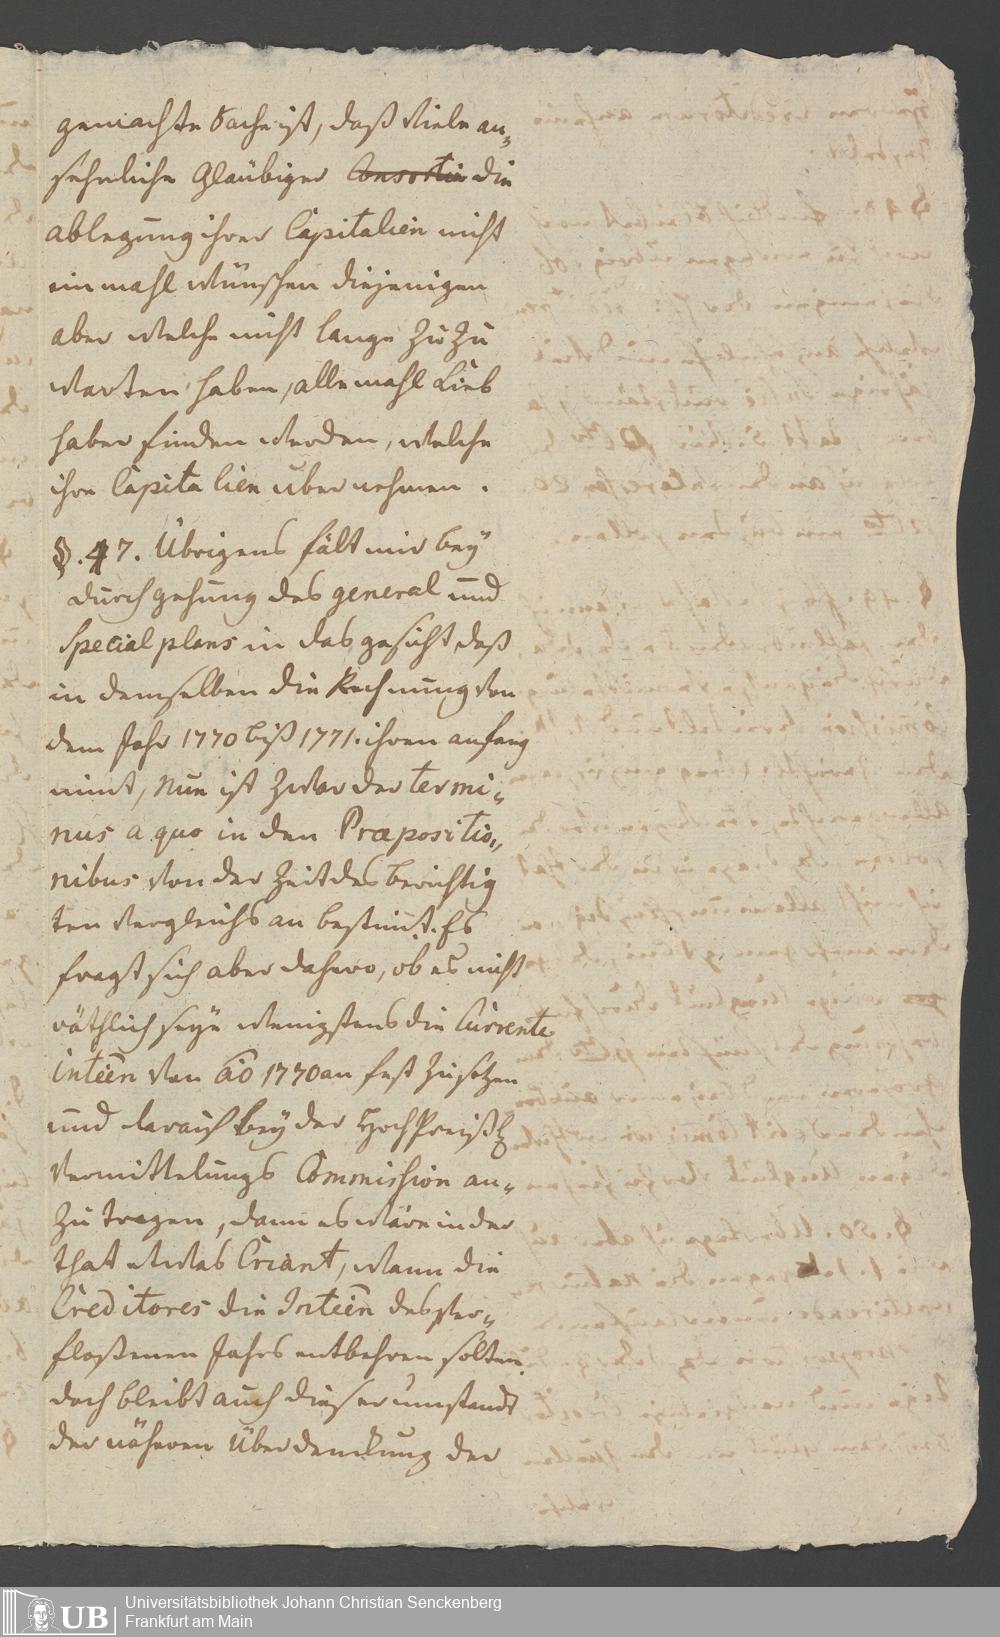 gemachte Sache ist, daß viele an„
sehnliche Gläubiger Consortii die
ablegung ihrer Capitalien nicht
einmahl wünschen diejenigen
aber welche nicht lange zu zu
warten haben, alle mahl Lieb
haber finden werden, welche
ihre Capitalien über nehmen.
§. 47. Übrigens fält mir bey
durchgehung des general und
Special plans in das gesicht, daß
in demselben die Rechnung von
dem Jahr 1770 biß 1771. ihren anfang
nimt, Nun ist zwar der termi„
nus a quo in den Præpositio„
nibus von der Zeit des berichtig
ten Vergleichs an bestimt. Es
fragt sich aber dahero, ob es nicht
räthlich seye wenigstens die Currente
Inteen von ao 1770 an fest zu setzen
und darauf bey der HochPreißl
Vermittelungs Commission an„
zu tragen, dann es wäre in der
that etwas Criant, wann die
Creditores die Inteen des ver„
floßenen Jahrs entbehren solten
doch bleibt auch dieser umstandt
der näheren Überdenckung der
Universitätsbibliothek Johann Christian Senckenberg
UB Frankfurt am Main